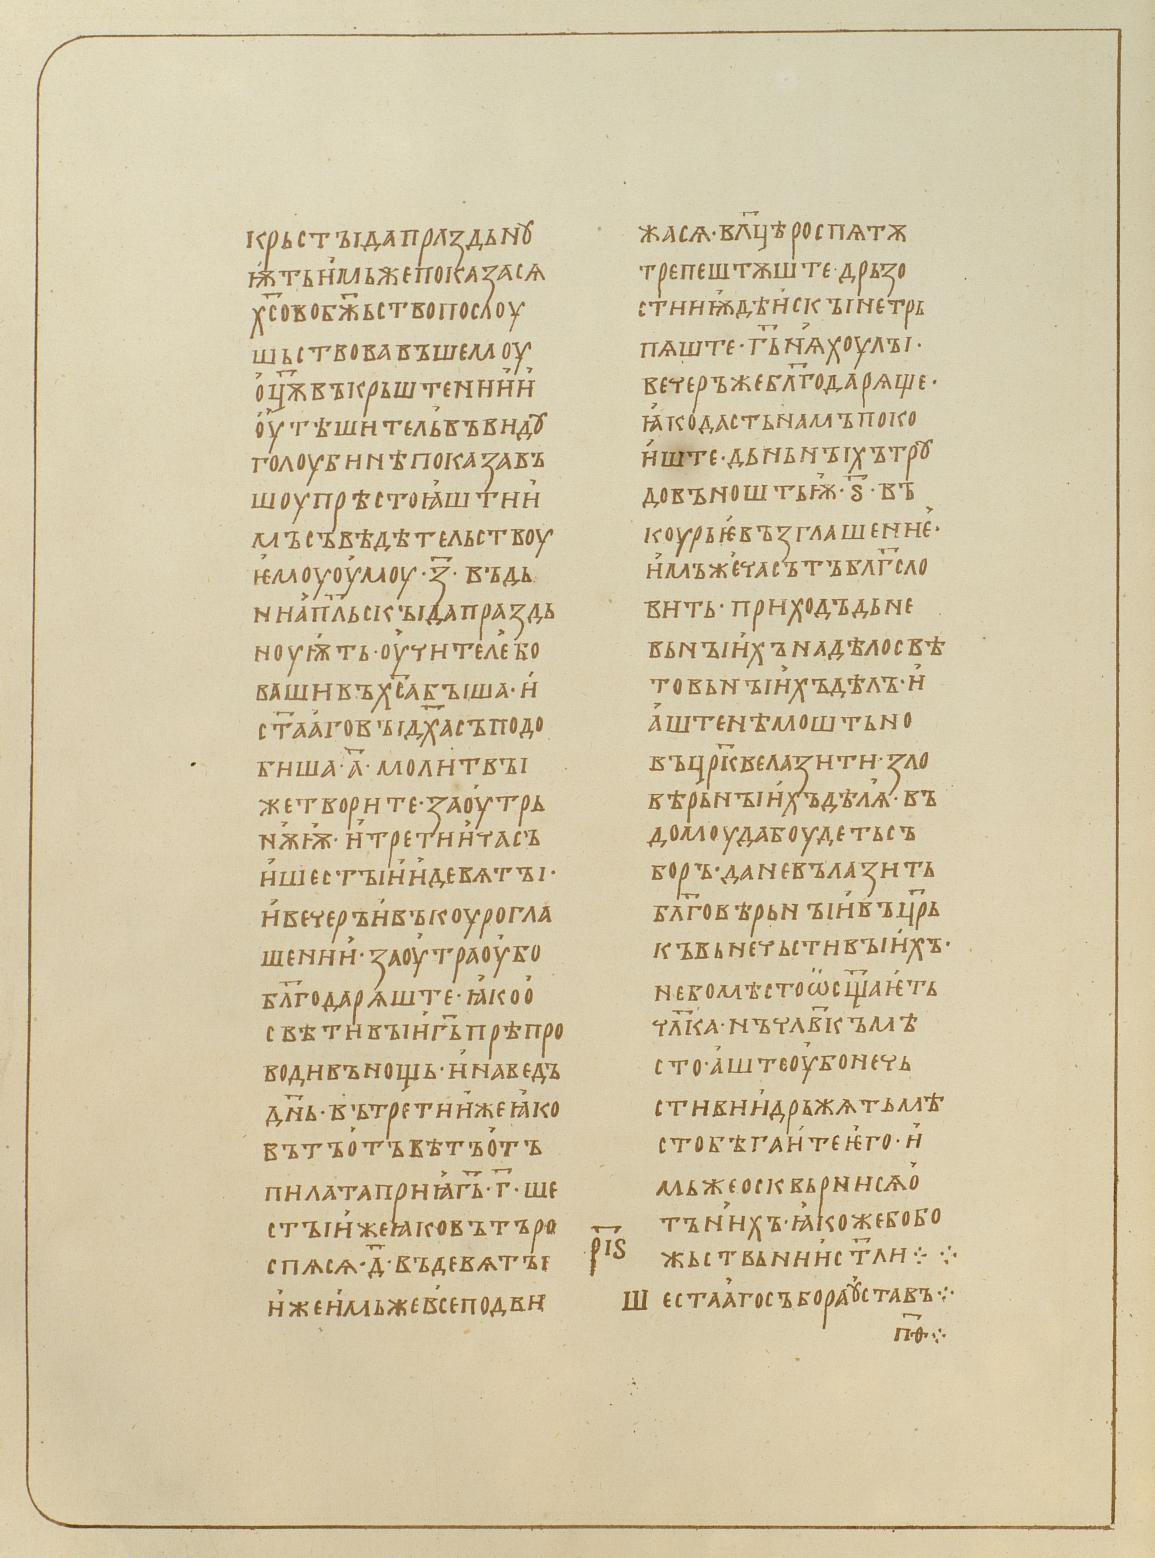 крьстъıдапраздьнꙋ
ѭтьи҆мьжепоказасѧ
х҃совобж҃ьствопослоу
шьствовавъшемоу
о҆ц҃ѫвъкрьштениии҆
оу҆тѣшительвъвидꙋ
голоубинѣпоказавъ
шоупрѣстоꙗштии҆
мъсъвѣдѣтельствоу
ѥмоуоу҆моу·з҃·въдь
ниа҆пл҃ьскъıдапраздь
ноуѭть·оу҆чителебо
вашивъх҃сабъıша·и҆
ст҃аа҆говъıдх҃асъподо
биша·а҃·молитвъı
жетворите·заоу҆трь
нѫѭ·и҆третии҆часъ
и҆шестъıи҆и҆девѧтъı·
и҆вечеръи҆въкоурогла
шении҆·заоу҆траоу҆бо
бл҃годарѧште·ꙗкоо҆
свѣтивъıи҆г҃ьпрѣпро
водивънощь·и҆наведъ
дн҃ь·вътретии҆жеꙗко
вътъо҆тъвѣтъо҆тъ
пилатаприꙗг҃ь·г҃·ше
стъıи҆жеꙗковътъро
спѧсѧ·д҃·въдевѧтъı
и҆жеи҆мьжевсеподви
жасѧ·вл҃цѣроспѧтѫ
трепештѫште·дрьзо
стииѭдѣи҆скъıнетрь
пѧште·г҃ьнѧхоулъı·
вечеръжебл҃годарѧще·
ꙗкодастьнамъпоко
и҆ште·дьньнъıхътрꙋ
довъноштьѭ·ѕ҃·въ
коурьѥвъзглашениѥ·
и҆мъжечасътъблг҃сло
вить·приходъдьне
вьнъıи҆хънадѣлосвѣ
товьнъıи҆хъдѣлъ·и҆
а҆штенѣмоштьно
въцр҃квелазити·зло
вѣрьнъıи҆хъдѣлѧ·въ
домоудабоудетьсъ
боръ·даневълазить
бл҃говѣрьнъıи҆въцр҃ь
къвьнечьстивъıи҆хъ·
небомѣстоѡсщ҃аѥть
чл҃ка·нъчлв҃къмѣ
сто·а҆штеоу҆бонечь
стивии҆држѧтьмѣ
стобѣгаи҆теѥго·и҆
мьжеосквьрнисѧо҆
тъни҆хъ·ꙗкожебобо
рı҃ѕ жьствьнии҆ст҃ли⁘ ⁘
Ш естаа҆госъбораꙋставъ⁘
пѳ҃⁘